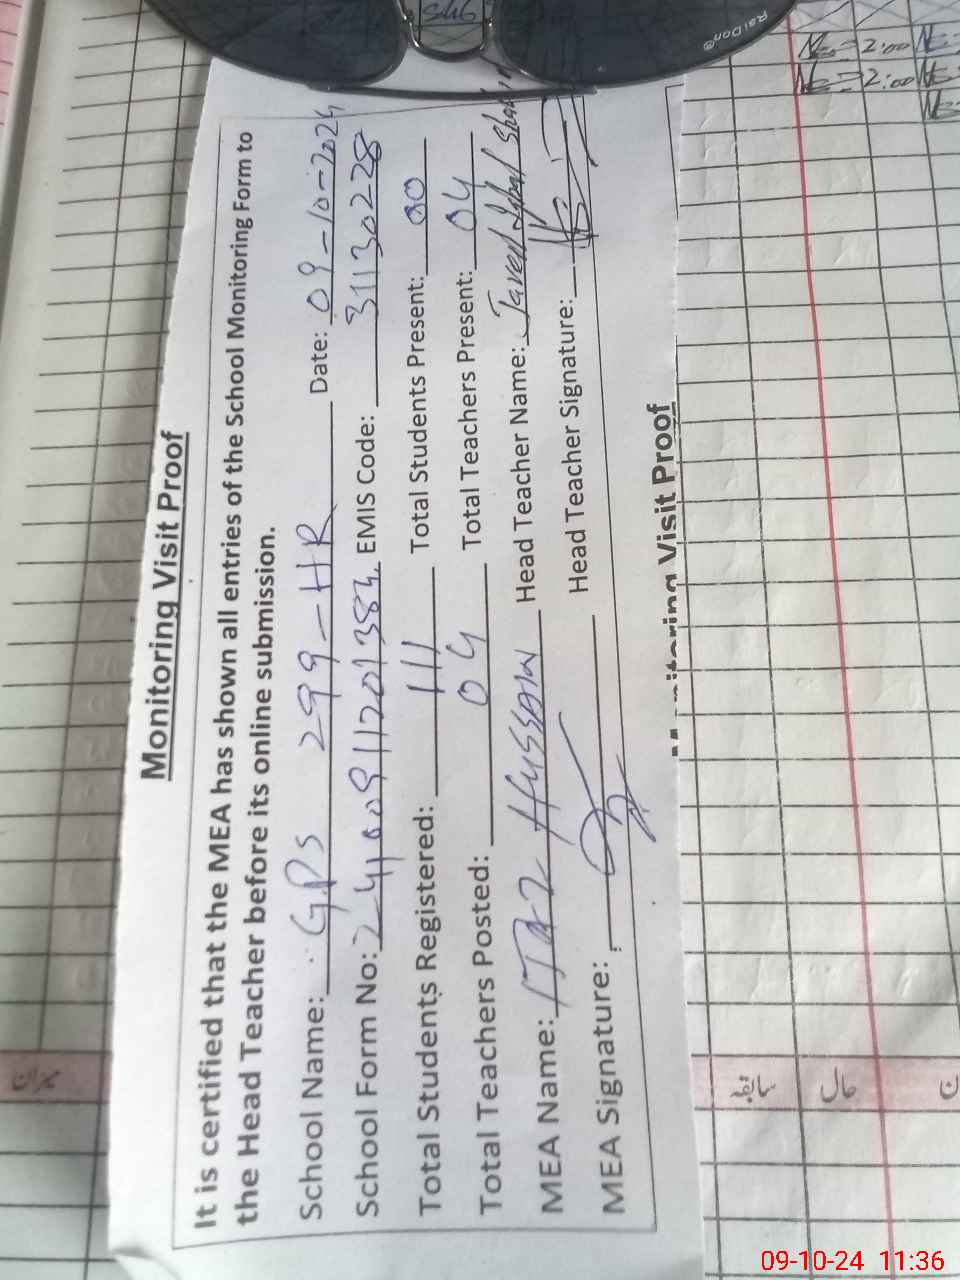 Monitoring Visit Proof
It is certified that the MEA has shown all entries of the School Monitoring Form to
the Head Teacher before its online submission.
School Name: GPS 299-HR Date: 09-10-2024
School Form No: EMIS Code: 31130228
Total Students Registered: 111 Total Students Present: 00
Total Teachers Posted: 04 Total Teachers Present: 04
MEA Name: HUSSAIN Head Teacher Name: Javed Iqbal
MEA Signature: Head Teacher Signature:
Monitoring Visit Proof
RaiDon®
2:00
2:00
میزان
سابقہ
حال
09-10-24 11:36